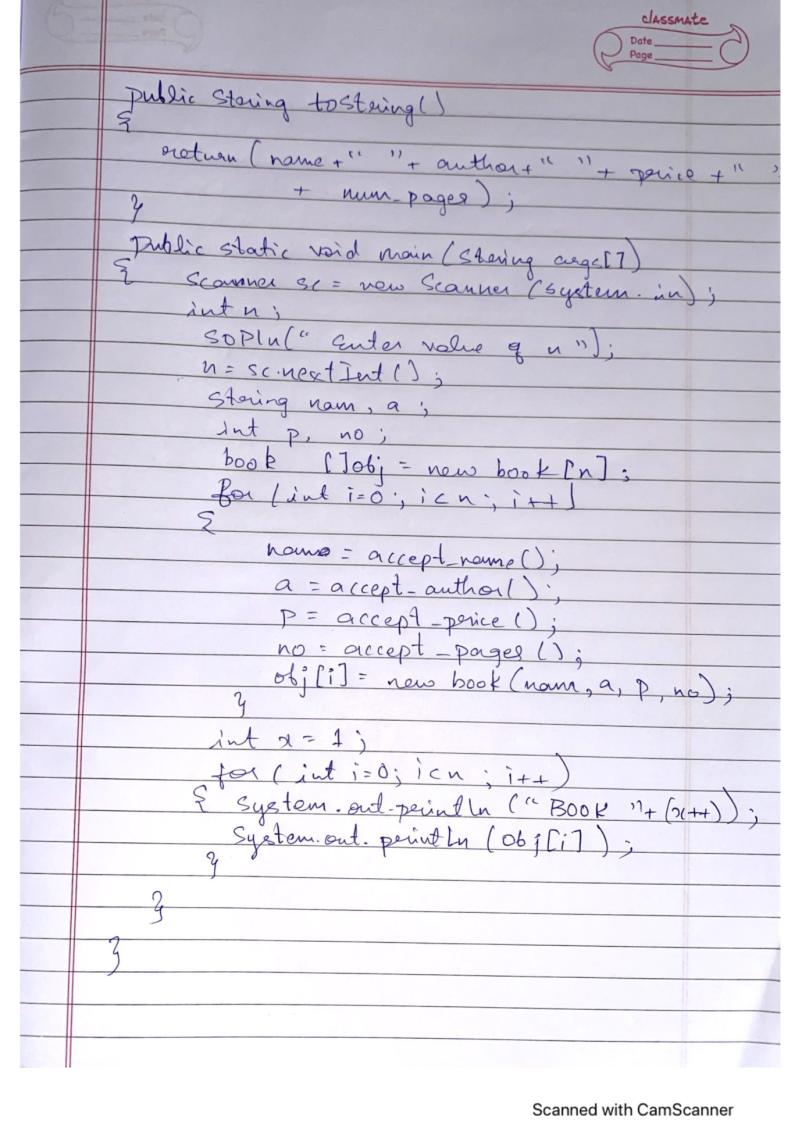 classmate
Date
Page
public String toString()
{
return (name +" "+ author+" "+ price +" "
+ num_pages);
}
public static void main (String args[])
{ Scanner sc = new Scanner (System.in);
int n;
SOPln(" Enter value of n ");
n = sc.nextInt();
String nam, a ;
int p, no ;
book []obj = new book [n] ;
for (int i=0 ; i<n ; i++)
{
name = accept_name();
a = accept_author();
p = accept_price ();
no = accept_pages ();
obj[i] = new book (nam, a, p, no);
}
int x = 1 ;
for ( int i=0; i<n ; i++)
{ System.out.println (" BOOK "+ (x++));
System.out.println (obj[i] );
}
}
}
Scanned with CamScanner